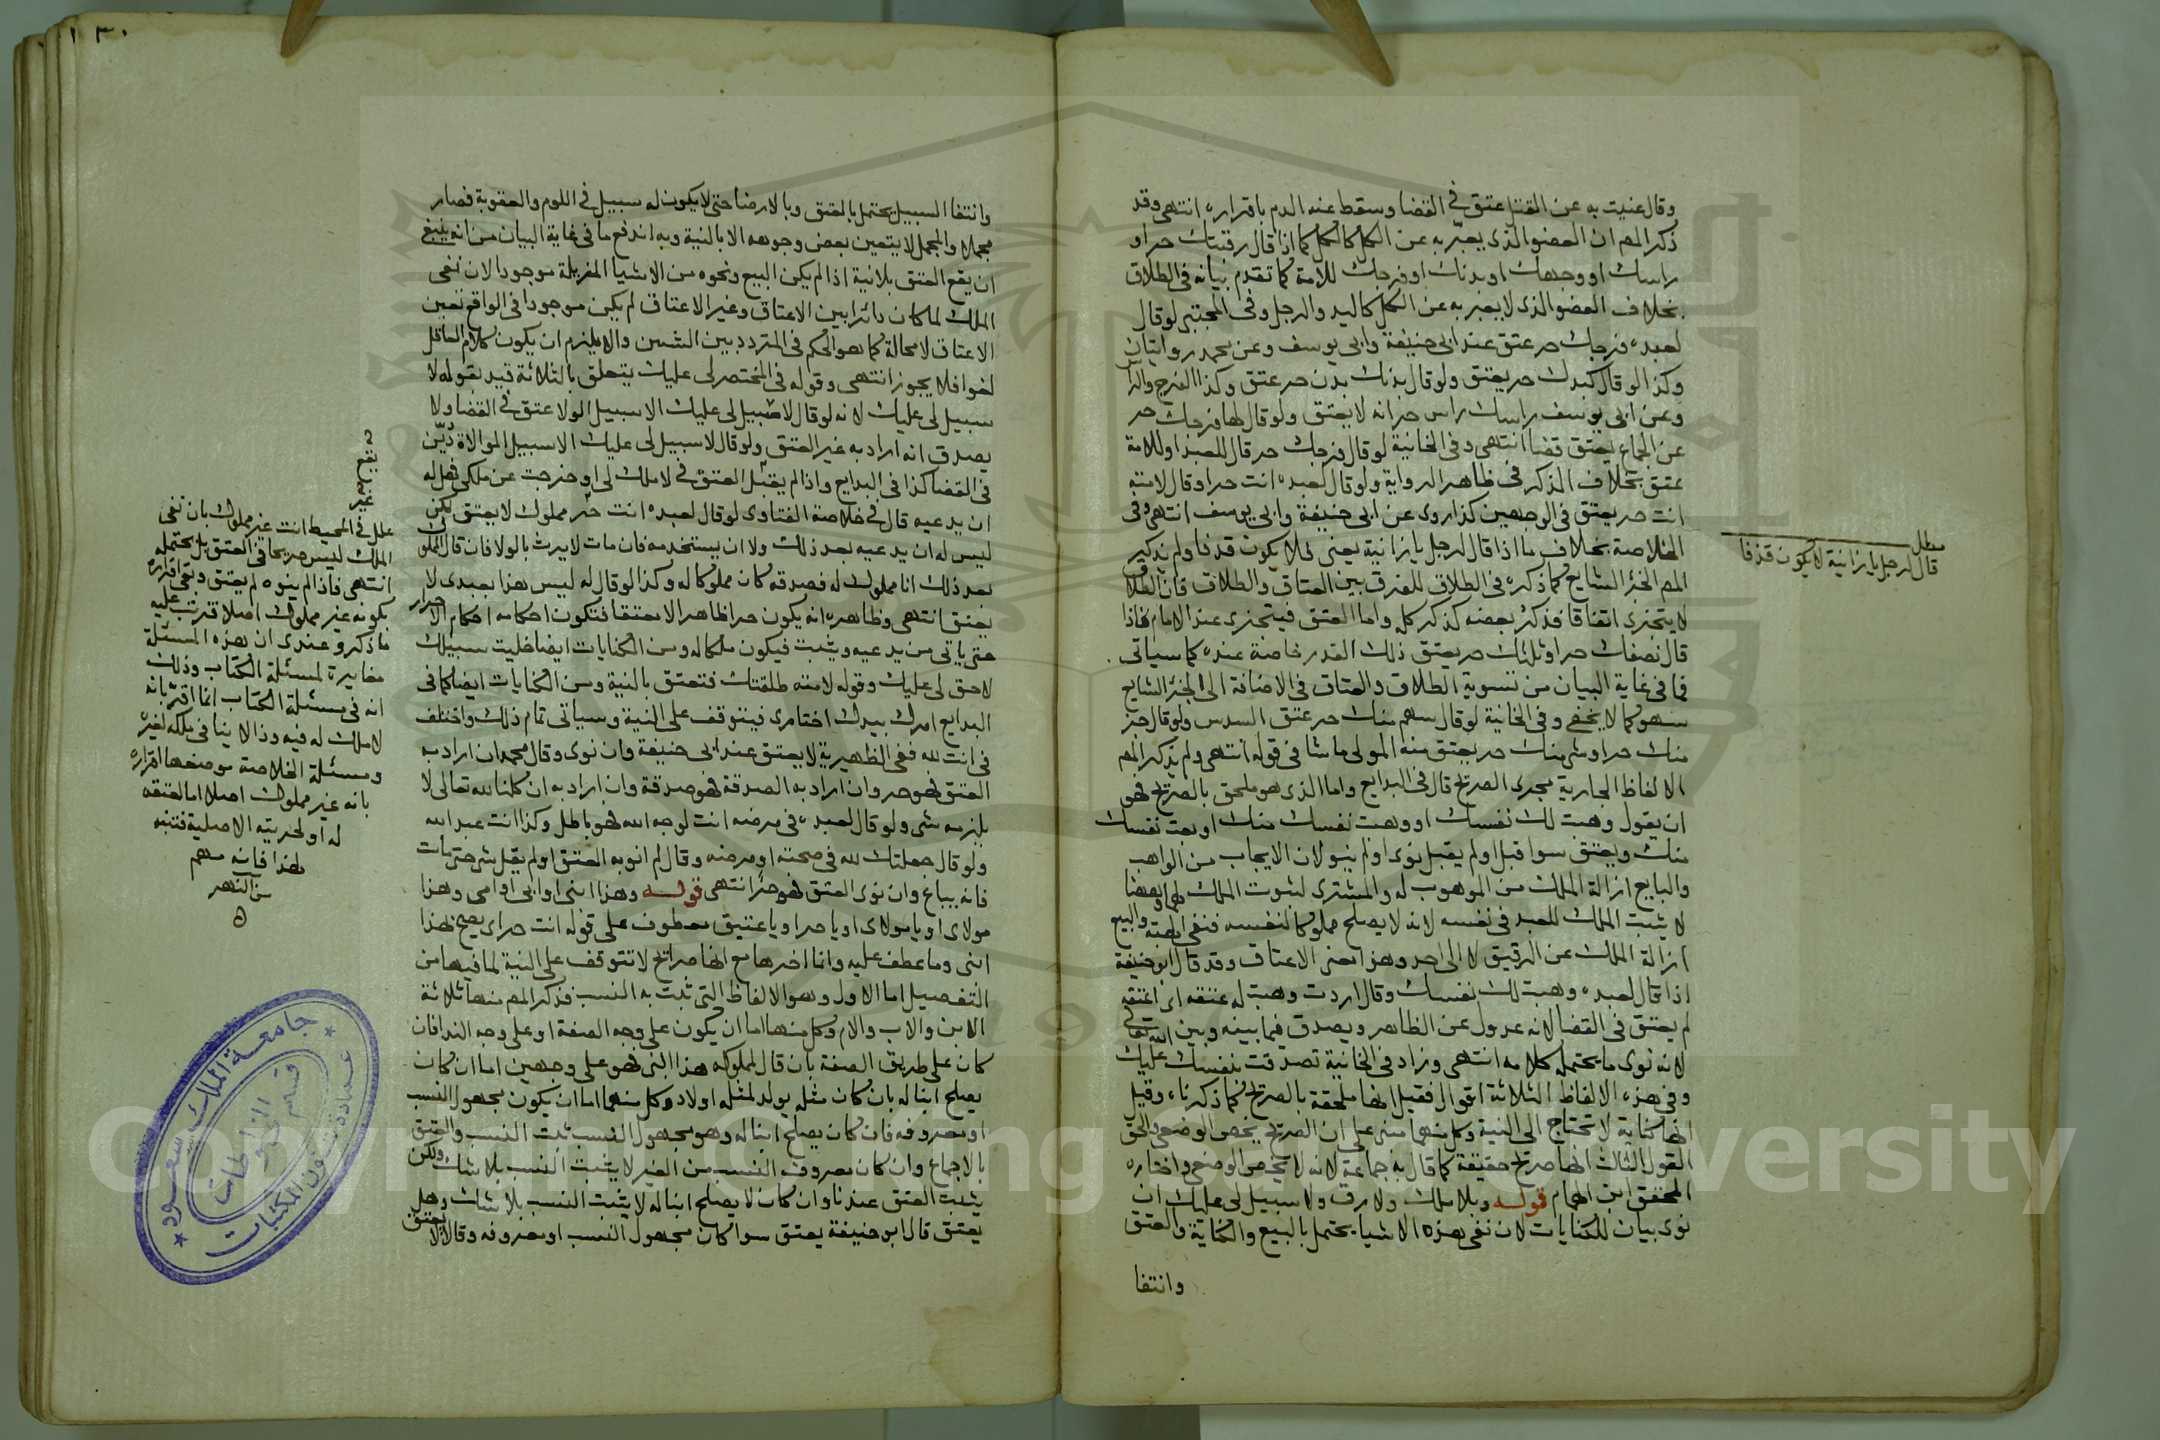 وقال عنيت به عن القتل عتق في القضا وسقط عنه الدم باقراره انتهى وقد
ذكر المص ان العضو الذي يعبر به عن الكل كالكل كما اذا قال رقبتك حر او
راسك او وجهك او بدنك او فرجك للامة كما تقدم بيانه في الطلاق
بخلاف العضو الذي لا يعبر به عن الكل كاليد والرجل وفي المجتبى لو قال
لعبده فرجك حر عتق عند ابي حنيفة وابي يوسف وعن محمد روايتان
وكذا لو قال كبدك حر يعتق ولو قال بدنك بدن حر عتق وكذا الفرج والراس
وعن ابي يوسف راسك راس حر انه لا يعتق ولو قال لها فرجك حر
عن الجماع يعتق قضا انتهى وفي الخانية لو قال فرجك حر قال للعبد او للامة
عتق بخلاف الذكر في ظاهر الرواية ولو قال لعبده انت حرة او قال لامته
انت حر يعتق في الوجهين كذا روى عن ابي حنيفة وابي يوسف انتهى وفي
الخلاصة بخلاف ما اذا قال لرجل يا زانية يعني لا يكون قذفا ولم يذكر
المص الجزء الشايع كما ذكره في الطلاق للفرق بين العتاق والطلاق فان الطلاق
لا يتجزى اتفاقا فذكر بعضه كذكر كله واما العتق فيتجزى عند الامام فاذا
قال نصفك حر او ثلثك حر يعتق ذلك القدر خاصة عنده كما سياتي
فما في غاية البيان من تسوية الطلاق والعتاق في الاضافة الى الجزء الشايع
سهو كما لا يخفى وفي الخانية لو قال سهم منك حر عتق السدس ولو قال جزء
منك حر او شي منك حر يعتق منه المولى ما شا في قوله انتهى ولم يذكر المص
الالفاظ الجارية مجرى الصريح قال في البدايع واما الذي هو ملحق بالصريح فهو
ان يقول وهبت لك نفسك او وهبت نفسك منك او بعت نفسك
منك ويعتق سوا قبل او لم يقبل نوى او لم ينو لان الايجاب من الواهب
والبايع ازالة الملك من الموهوب له والمشترى لثبوت الملك لهما وههنا
لا يثبت الملك للعبد في نفسه لانه لا يصلح مملوكا لنفسه فبقي الهبة والبيع
ازالة الملك عن الرقيق لا الى احد وهذا معنى الاعتاق وقد قال ابو حنيفة
اذا قال لعبده وهبت لك نفسك وقال اردت وهبت له عتقه اي اعتقه
لم يعتق في القضا لانه عدول عن الظاهر ويصدق فيما بينه وبين الله تعالى
لانه نوى ما يحتمله كلامه انتهى وزاد في الخانية تصدقت بنفسك عليك
وفي هذه الالفاظ الثلاثة اقوال فقيل انها ملحقة بالصريح كما ذكرناه وقيل
انها كناية لا تحتاج الى النية وكل منهما مبني على ان الصريح يخص الوضعي والحق
القول الثالث انها صريح حقيقة كما قال به جماعة لانه لا يخص الوضعي واختاره
المحقق ابن الهمام قوله وبلا ملك ولا رق ولا سبيل لي عليك ان
نوى بيان للكنايات لان نفي هذه الاشيا يحتمل بالبيع والكتابة والعتق
وانتفا
مطلب
قال لرجل يا زانية لا يكون قذفا
١٣٠
وانتفا السبيل يحتمل بالعتق وبالارضا حتى لا يكون له سبيل في اللوم والعقوبة فصار
مجملا والمجمل لا يتعين بعض وجوهه الا بالنية وبه اندفع ما في غاية البيان من انه ينبغي
ان يقع العتق بلا نية اذا لم يكن البيع ونحوه من الاشيا المزيلة موجودا لان نفي
الملك لما كان دائرا بين الاعتاق وغير الاعتاق لم يكن موجودا في الواقع تعين
الاعتاق لا محالة كما هو الحكم في المتردد بين الشيئين والا يلزم ان يكون كلام العاقل
لغوا فلا يجوز انتهى وقوله في المختصر لي عليك يتعلق بالثلاثة قيد بقوله لا
سبيل لي عليك لانه لو قال لا سبيل لي عليك الا سبيل الولا عتق في القضا ولا
يصدق انه اراد به غير العتق ولو قال لا سبيل لي عليك الا سبيل الموالاة دين
في القضا كذا في البدايع واذا لم يقبل العتق في لا ملك لي او خرجت عن ملكي فهل له
ان يدعيه قال في خلاصة الفتاوى لو قال لعبده انت غير مملوك لا يعتق لكن
ليس له ان يدعيه بعد ذلك ولا ان يستخدمه فان مات لا يرث بالولا فان قال المملوك
بعد ذلك انا مملوك له فصدقه كان مملوكا له وكذا لو قال له ليس هذا بعبدي لا
يعتق انتهى وظاهره انه يكون حرا ظاهرا لا معتقا فتكون احكامه احكام الاحرار
حتى ياتي من يدعيه ويثبت فيكون ملكا له ومن الكنايات ايضا خليت سبيلك
لا حق لي عليك وقوله لامته طلقتك فتعتق بالنية ومن الكنايات ايضا كما في
البدايع امرك بيدك اختاري فيتوقف على النية وسياتي تمام ذلك واختلف
في انت لله ففي الظهيرية لا يعتق عند ابي حنيفة وان نوى وقال محمد ان اراد به
العتق فهو حر وان اراد به الصدقة فهو صدقة وان اراد به ان كلنا لله تعالى لا
يلزمه شي ولو قال لعبده في مرضه انت لوجه الله فهو باطل وكذا انت عبد الله
ولو قال جعلتك لله في صحته او مرضه وقال لم انو به العتق او لم يقل شي حتى مات
فانه يباع وان نوى العتق فهو حر انتهى قوله وهذا ابني او ابي او امي وهذا
مولاى او يا مولاى او يا حر او يا عتيق معطوف على قوله انت حر اي يصح بهذا
ابني وما عطف عليه وانما اخرها مع انها صرايح لا تتوقف على النية لما فيها من
التفصيل اما الاول وهو الالفاظ التي تثبت به النسب فذكر المص منها ثلاثة
الابن والاب والام وكل منها اما ان يكون على وجه الصفة او على وجه الندا فان
كان على طريق الصفة بان قال لمملوكه هذا ابني فهو على وجهين اما ان كان
يصلح ابنا له بان كان مثله يولد لمثله او لا وكل منهما اما ان يكون مجهول النسب
او معروفه فان كان يصلح ابنا له وهو مجهول النسب ثبت النسب والعتق
بالاجماع وان كان معروف النسب من الغير لا يثبت النسب بلا شك ولكن
يثبت العتق عندنا وان كان لا يصلح ابنا له لا يثبت النسب بلا شك وهل
يعتق قال ابو حنيفة يعتق سوا كان مجهول النسب او معروفه وقالا لا يعتق
علل في المحيط انت غير مملوك بان نفي
الملك ليس صريحا في العتق بل يحتمله
انتهى فاذا لم ينوه لم يعتق وبقي اقراره
بكونه غير مملوك اصلا فترتب عليه
ما ذكر وعندي ان هذه المسئلة
مغايرة لمسئلة الكتاب وذلك
انه في مسئلة الكتاب انما اقر بانه
لا ملك له فيه وذا لا ينافي ملكه لغيره
ومسئلة الخلاصة موضعها اقراره
بانه غير مملوك اصلا اما لعتقه
له او لحريته الاصلية فتنبه
لهذا فانه مهم
من النهر
جامعة الملك سعود
عمادة شؤون المكتبات
قسم المخطوطات
Copyright © King Saud University